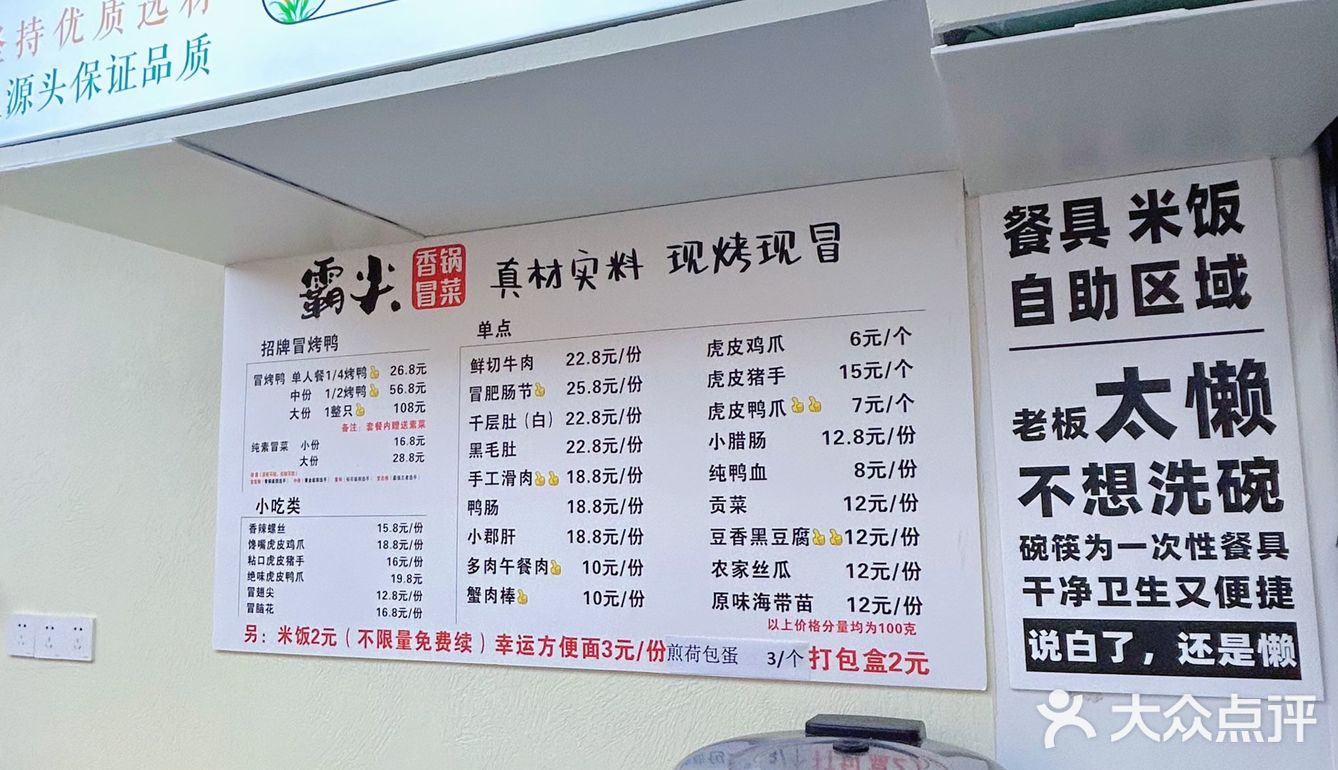 坚持优质选材
源头保证品质
霸尖 香锅冒菜 真材实料 现烤现冒
招牌冒烤鸭
冒烤鸭 单人餐1/4烤鸭 26.8元
中份 1/2烤鸭 56.8元
大份 1整只 108元
备注：套餐内赠送素菜
纯素冒菜 小份 16.8元
大份 28.8元
小吃类
香辣螺丝 15.8元/份
馋嘴虎皮鸡爪 18.8元/份
粘口虎皮猪手 16元/份
绝味虎皮鸭爪 19.8元
冒翅尖 12.8元/份
冒脑花 16.8元/份
单点
鲜切牛肉 22.8元/份
冒肥肠节 25.8元/份
千层肚（白） 22.8元/份
黑毛肚 22.8元/份
手工滑肉 18.8元/份
鸭肠 18.8元/份
小郡肝 18.8元/份
多肉午餐肉 10元/份
蟹肉棒 10元/份
虎皮鸡爪 6元/个
虎皮猪手 15元/个
虎皮鸭爪 7元/个
小腊肠 12.8元/份
纯鸭血 8元/份
贡菜 12元/份
豆香黑豆腐 12元/份
农家丝瓜 12元/份
原味海带苗 12元/份
以上价格分量均为100克
另：米饭2元（不限量免费续）幸运方便面3元/份 煎荷包蛋 3/个 打包盒2元
餐具 米饭
自助区域
老板太懒
不想洗碗
碗筷为一次性餐具
干净卫生又便捷
说白了，还是懒
大众点评